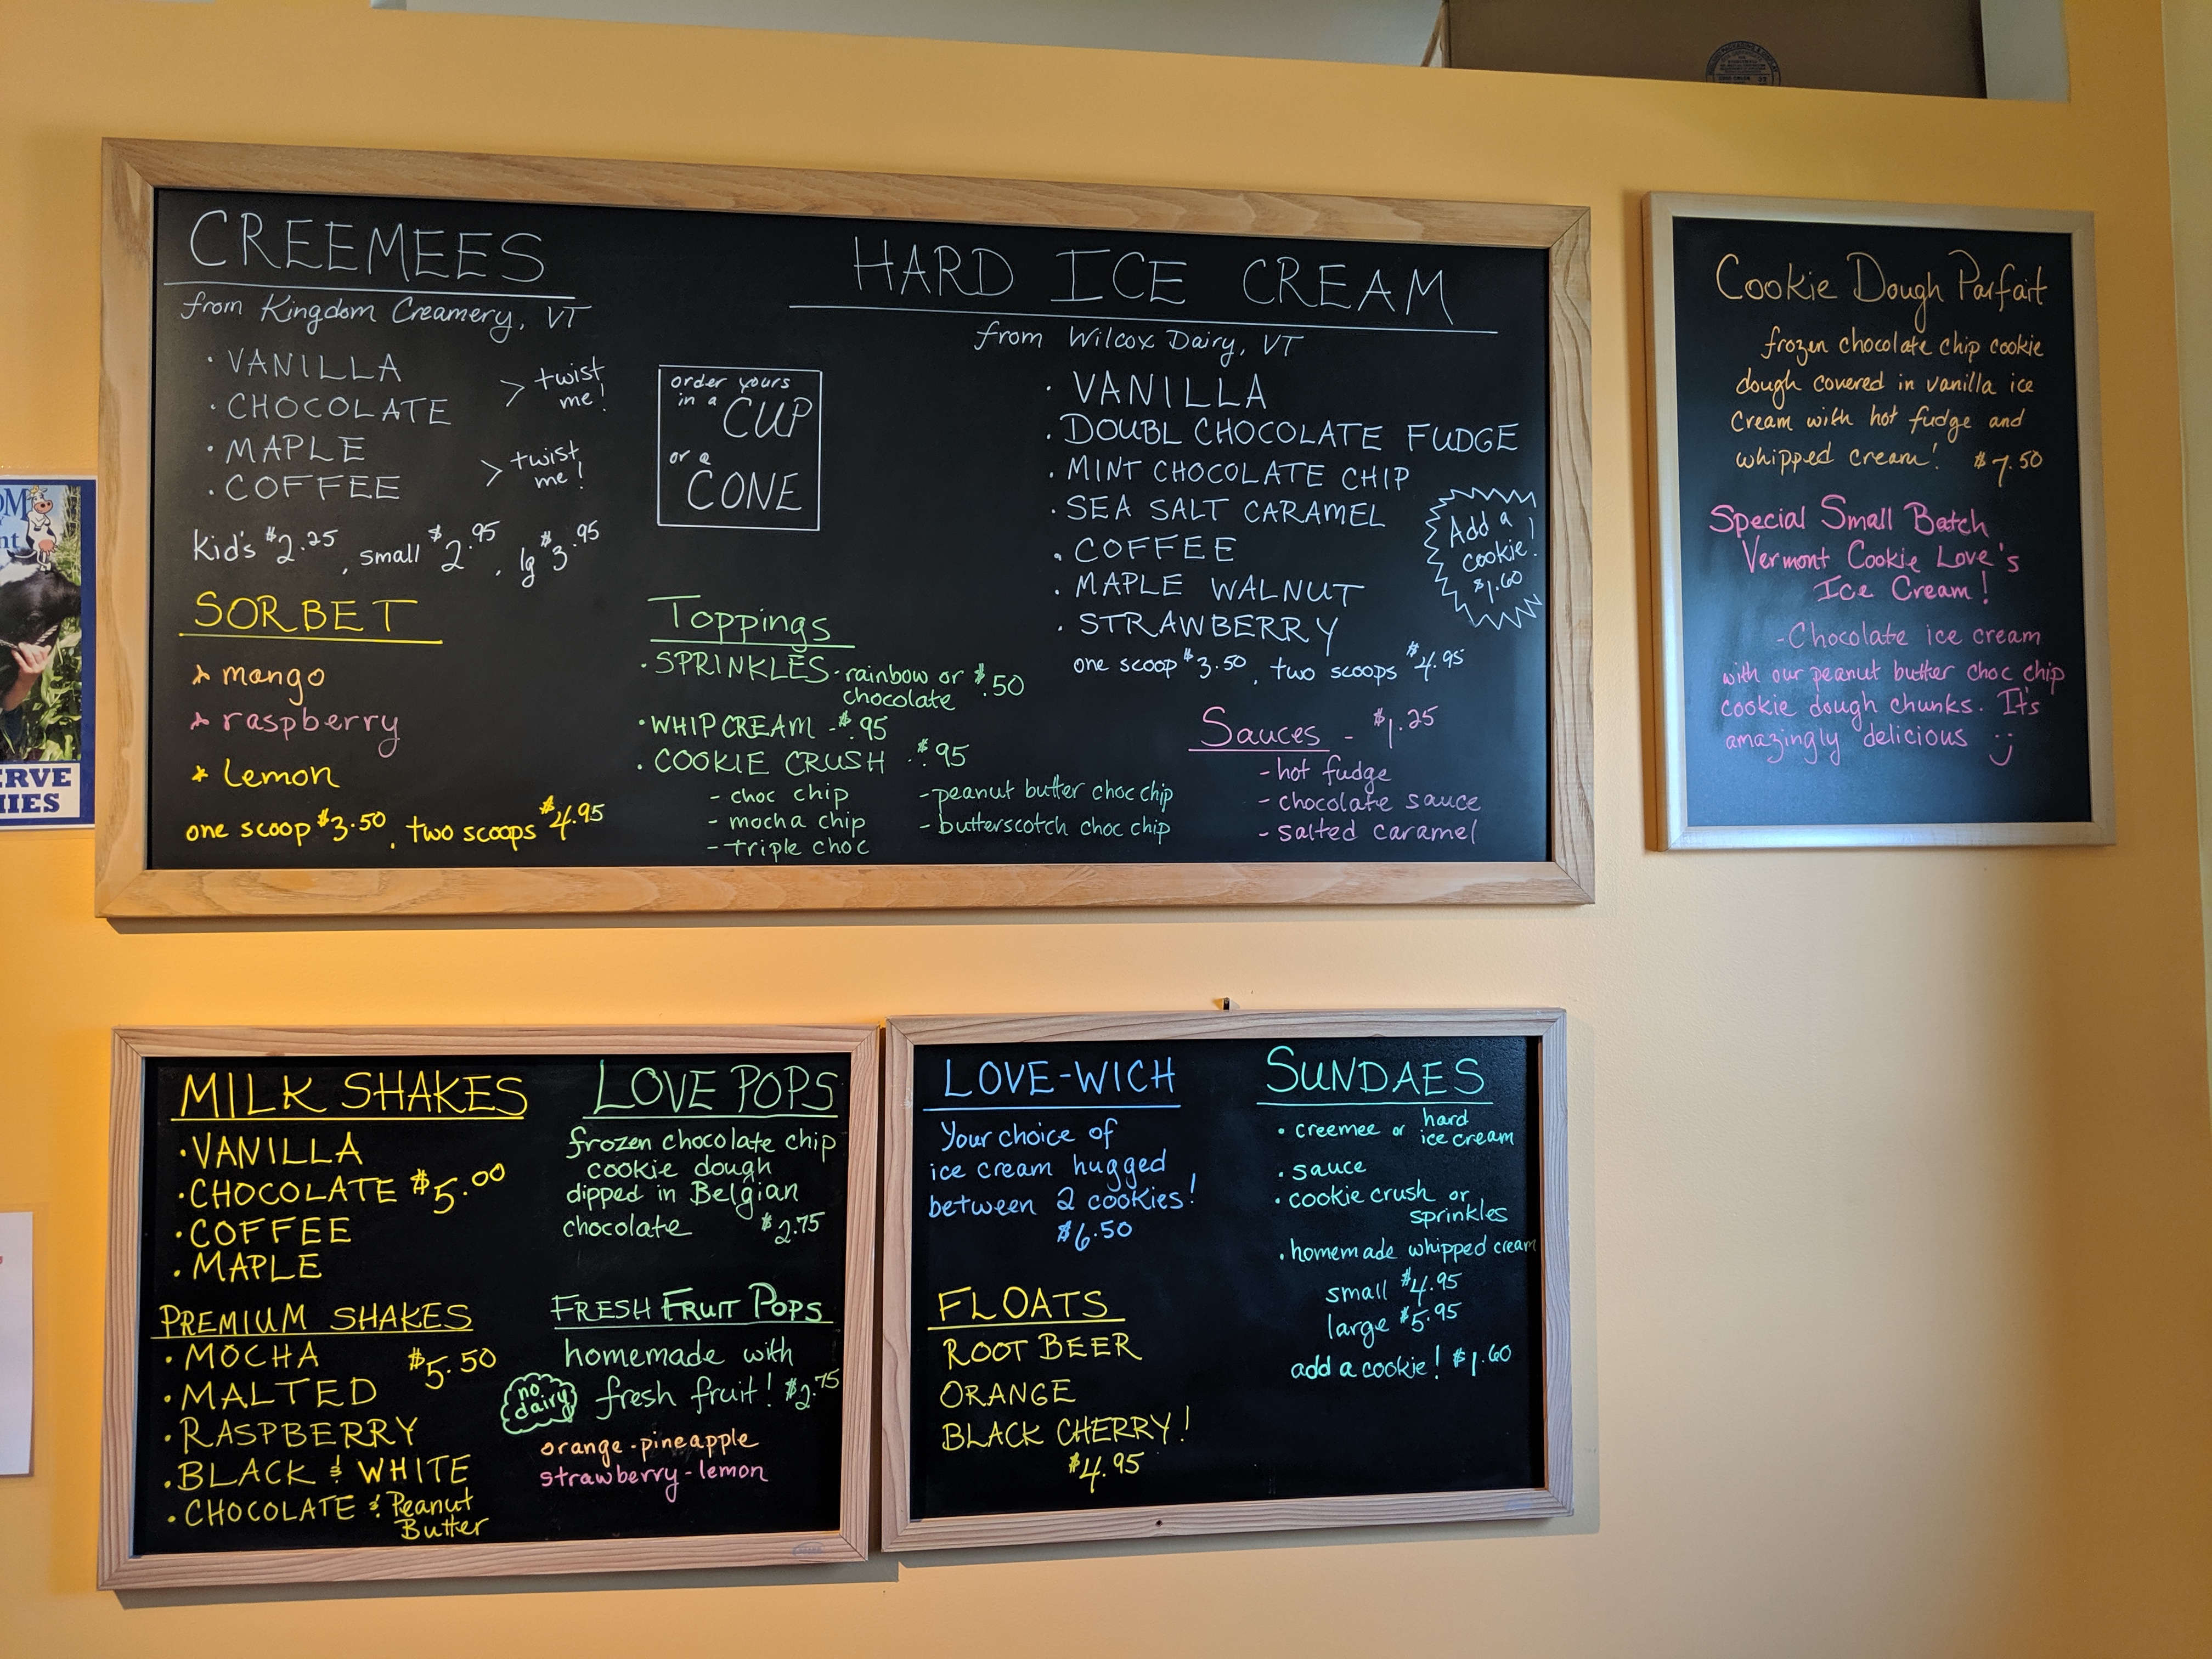 CREEMEES
from Kingdom Creamery, VT
· VANILLA
· CHOCOLATE
> twist
me!
· MAPLE
· COFFEE
> twist
me!
Kid's $2.25, small $2.95, lg $3.95
SORBET
mango
raspberry
* Lemon
one scoop $3.50, two scoops $4.95
order yours
in a CUP
or a
CONE
Toppings
· SPRINKLES - rainbow or $.50
chocolate
· WHIP CREAM - $.95
· COOKIE CRUSH - $.95
- choc chip
- mocha chip
- triple choc
- peanut butter choc chip
- butterscotch choc chip
HARD ICE CREAM
from Wilcox Dairy, VT
· VANILLA
· DOUBL CHOCOLATE FUDGE
· MINT CHOCOLATE CHIP
· SEA SALT CARAMEL
· COFFEE
· MAPLE WALNUT
· STRAWBERRY
one scoop $3.50, two scoops $4.95
Add a
cookie!
$1.60
Sauces - $1.25
- hot fudge
- chocolate sauce
- salted caramel
Cookie Dough Parfait
frozen chocolate chip cookie
dough covered in vanilla ice
cream with hot fudge and
whipped cream! $7.50
Special Small Batch
Vermont Cookie Love's
Ice Cream!
- Chocolate ice cream
with our peanut butter choc chip
cookie dough chunks. It's
amazingly delicious :)
ERVE
IES
MILK SHAKES
· VANILLA
· CHOCOLATE $5.00
· COFFEE
· MAPLE
PREMIUM SHAKES
· MOCHA $5.50
· MALTED
· RASPBERRY
· BLACK & WHITE
· CHOCOLATE & Peanut
Butter
LOVE POPS
frozen chocolate chip
cookie dough
dipped in Belgian
chocolate $2.75
FRESH FRUIT POPS
homemade with
fresh fruit! $2.75
no
dairy
orange-pineapple
strawberry-lemon
LOVE-WICH
Your choice of
ice cream hugged
between 2 cookies!
$6.50
FLOATS
ROOT BEER
ORANGE
BLACK CHERRY!
$4.95
SUNDAES
· creemee or hard
ice cream
· sauce
· cookie crush or
sprinkles
· homemade whipped cream
small $4.95
large $5.95
add a cookie! $1.60